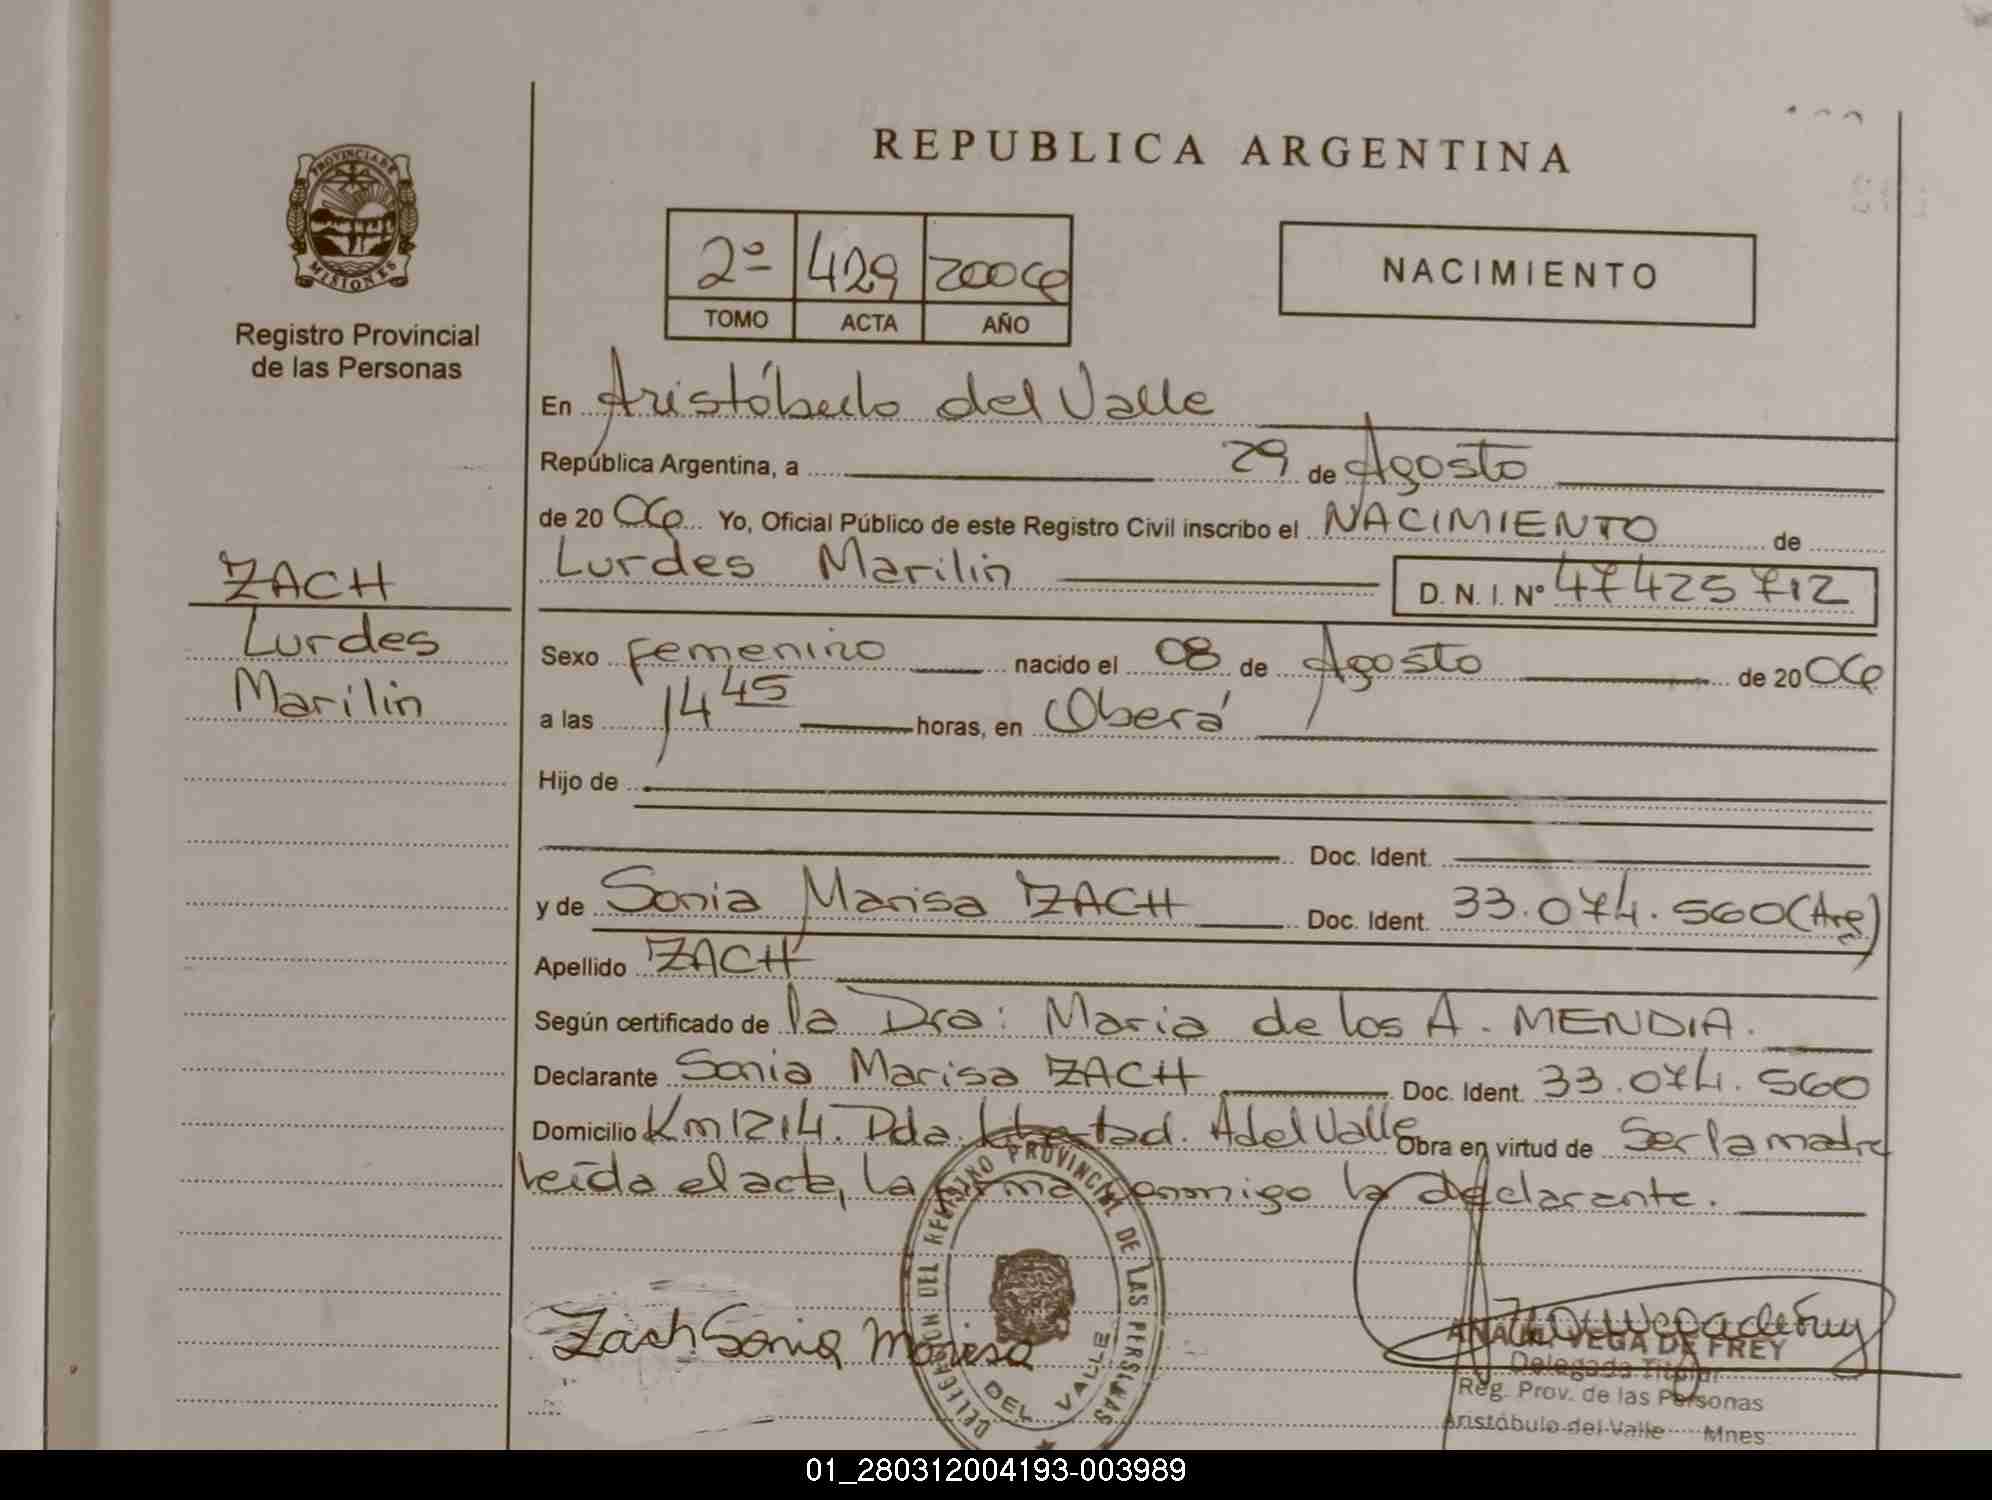 REPUBLICA ARGENTINA
PROVINCIA DE
MISIONES
Registro Provincial
de las Personas
2º 429 2006
TOMO ACTA AÑO
NACIMIENTO
En Aristóbulo del Valle
República Argentina, a 29 de Agosto
de 20 06 Yo, Oficial Público de este Registro Civil inscribo el NACIMIENTO de
Lurdes Marilin D. N. I. Nº 47425712
ZACH
Lurdes
Marilin
Sexo femenino nacido el 08 de Agosto de 20 06
a las 14 45 horas, en Oberá
Hijo de
Doc. Ident.
y de Sonia Marisa ZACH Doc. Ident. 33.074.560 (Arg)
Apellido ZACH
Según certificado de la Dra: Maria de los A. MENDIA.
Declarante Sonia Marisa ZACH Doc. Ident. 33.074.560
Domicilio Km 1214. Pda. Libertad. A del Valle Obra en virtud de Ser la madre
leída el acta, la firma conmigo la declarante.
Zach Sonia Marisa
DELEGACION DEL REGISTRO PROVINCIAL DE LAS PERSONAS
DEL VALLE
ANALIA VEGA DE FREY
Delegada Titular
Reg. Prov. de las Personas
Aristóbulo del Valle Mnes
01_280312004193-003989